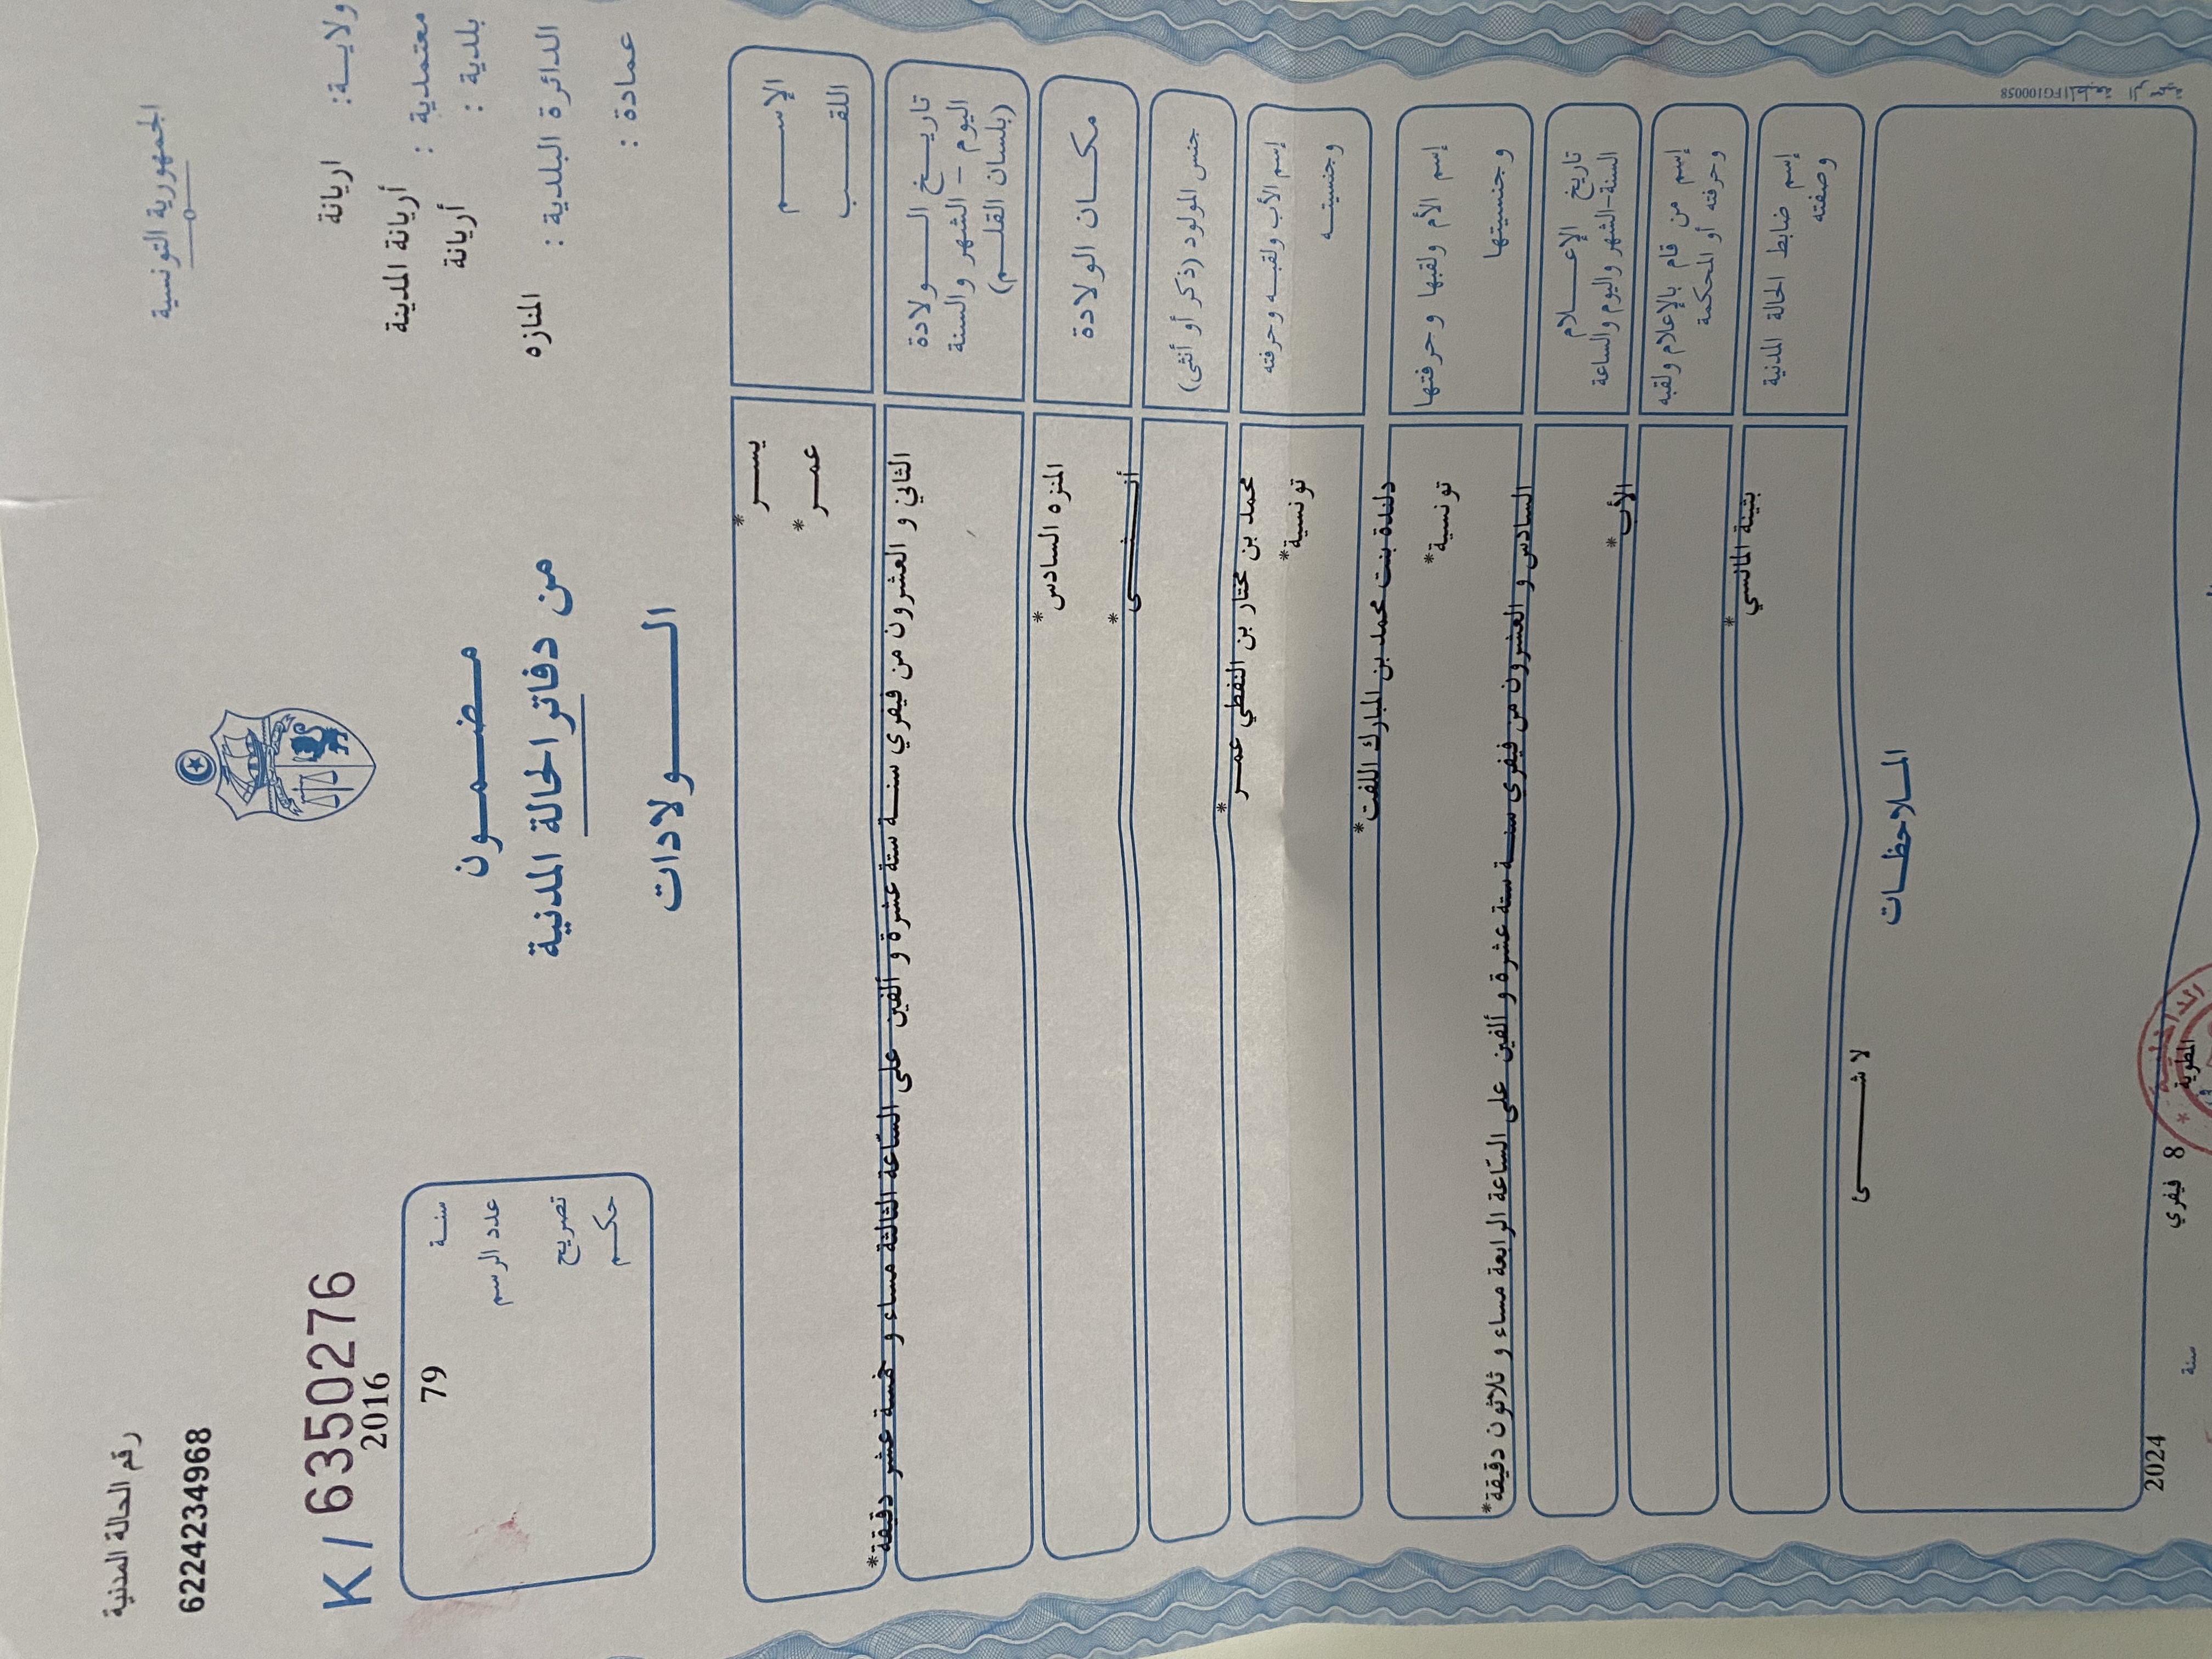 الجمهورية التونسية
رقم الحالة المدنية
6224234968
ولايـــة: اريانة
معتمدية : أريانة المدينة
بلدية : أريانة
الدائرة البلدية : المنازه
عمادة :
K / 6350276
2016
سنـــة
79
عدد الرسم
تصريح
حكـــم
مـضـمـون
من دفاتر الحالة المدنية
الـــولادات
الإســـــم
يســـر *
اللقـــب
عمـــر *
تاريـــخ الـــولادة
اليوم – الشهر والسنة
(بلسان القلـــم)
الثاني و العشرون من فيفري سنـة ستة عشرة و ألفين على الساعة الثالثة مساء و خمسة عشر دقيقة*
مكـــان الولادة
المنزه السادس *
جنس المولود (ذكر أو أنثى)
أنـــثـــى *
إسم الأب ولقبـــه وحرفته
محمد بن مختار بن النفطي عمـــر *
وجنسيتـــه
تونسية*
إسم الأم ولقبها وحرفتها
دليلدة بنت محمد بن المبارك اللفت*
وجنسيتها
تونسية*
تاريخ الإعـــلام
السنة-الشهر واليوم والساعة
السادس و العشرون من فيفري سنـة ستة عشرة و ألفين على الساعة الرابعة مساء و ثلاثون دقيقة*
إسم من قام بالإعلام ولقبه
وحرفته أو المحكمة
الأب *
إسم ضابط الحالة المدنية
وصفته
بثينة المالسي *
المـلاحظـــات
لا شـــــى
المطوية في
8 فيفري
سنة
2024
FG100058